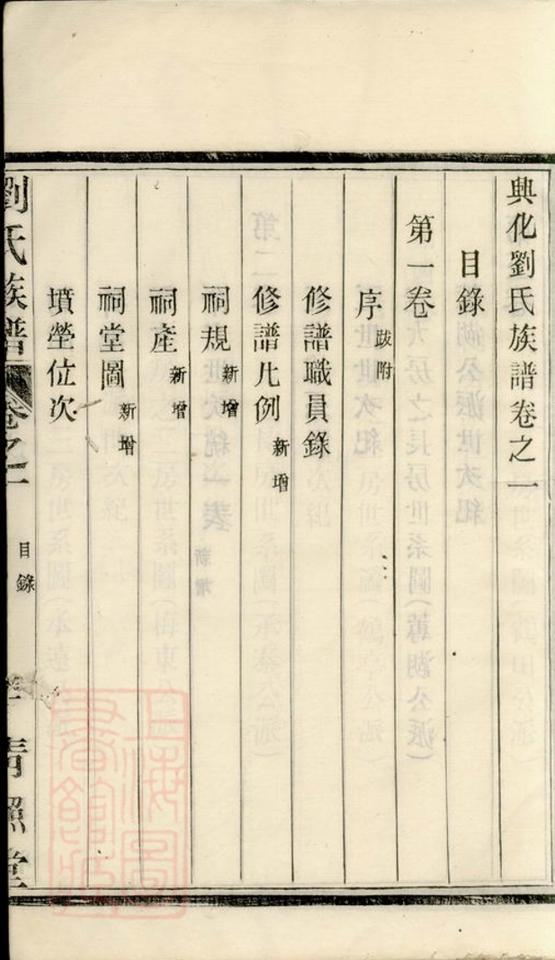 興化劉氏族譜卷之一
目錄
第一卷
序 跋附
修譜職員錄
修譜凡例 新增
祠規 新增
祠產 新增
祠堂圖 新增
墳塋位次
劉氏族譜 卷之一 目錄
青照堂
上海圖書館藏